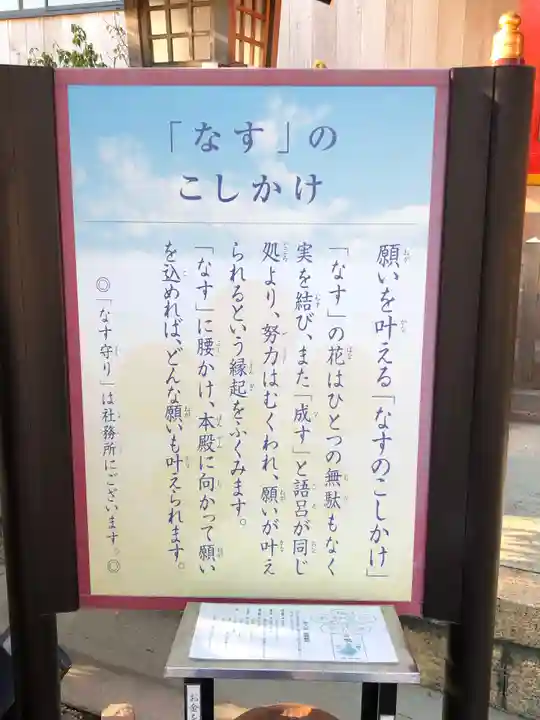 「なす」の
こしかけ
願いを叶える「なすのこしかけ」
「なす」の花はひとつの無駄もなく
実を結び、また「成す」と語呂が同じ
処より、努力はむくわれ、願いが叶え
られるという縁起をふくみます。
「なす」に腰かけ、本殿に向かって願い
を込めれば、どんな願いも叶えられます。
◎「なす守り」は社務所にございます。◎
お金を